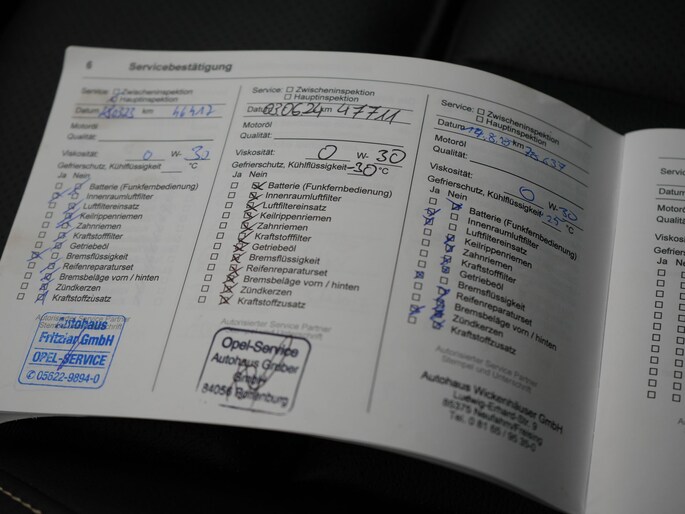 6 Servicebestätigung
Service: Zwischeninspektion
Hauptinspektion
Datum km 46412
Motoröl
Qualität:
Viskosität: 0 W- 30
Gefrierschutz, Kühlflüssigkeit °C
Ja Nein
Batterie (Funkfernbedienung)
Innenraumluftfilter
Luftfiltereinsatz
Keilrippenriemen
Zahnriemen
Kraftstofffilter
Getriebeöl
Bremsflüssigkeit
Reifenreparaturset
Bremsbeläge vorn / hinten
Zündkerzen
Kraftstoffzusatz
Autorisierter Service Partner
Autohaus
Fritzlar GmbH
OPEL-SERVICE
05622-9894-0
Service: Zwischeninspektion
Hauptinspektion
Datum 030624 km 47711
Motoröl
Qualität:
Viskosität: 0 W- 30
Gefrierschutz, Kühlflüssigkeit -30 °C
Ja Nein
Batterie (Funkfernbedienung)
Innenraumluftfilter
Luftfiltereinsatz
Keilrippenriemen
Zahnriemen
Kraftstofffilter
Getriebeöl
Bremsflüssigkeit
Reifenreparaturset
Bremsbeläge vorn / hinten
Zündkerzen
Kraftstoffzusatz
Autorisierter Service Partner
Opel-Service
Autohaus Gruber
GmbH
Service: Zwischeninspektion
Hauptinspektion
Datum km
Motoröl
Qualität:
Viskosität: 0 W-30
Gefrierschutz, Kühlflüssigkeit -25 °C
Ja Nein
Batterie (Funkfernbedienung)
Innenraumluftfilter
Luftfiltereinsatz
Keilrippenriemen
Zahnriemen
Kraftstofffilter
Getriebeöl
Bremsflüssigkeit
Reifenreparaturset
Bremsbeläge vorn / hinten
Zündkerzen
Kraftstoffzusatz
Autorisierter Service Partner
Stempel und Unterschrift
Autohaus Wickenhäuser GmbH
Ludwig-Erhard-Str. 9
85375 Neufahrn/Freising
Tel. 0 81 65 / 95 35-0
Servic
Datum
Motoröl
Qualität
Viskosität
Gefrierschu
Ja Nein